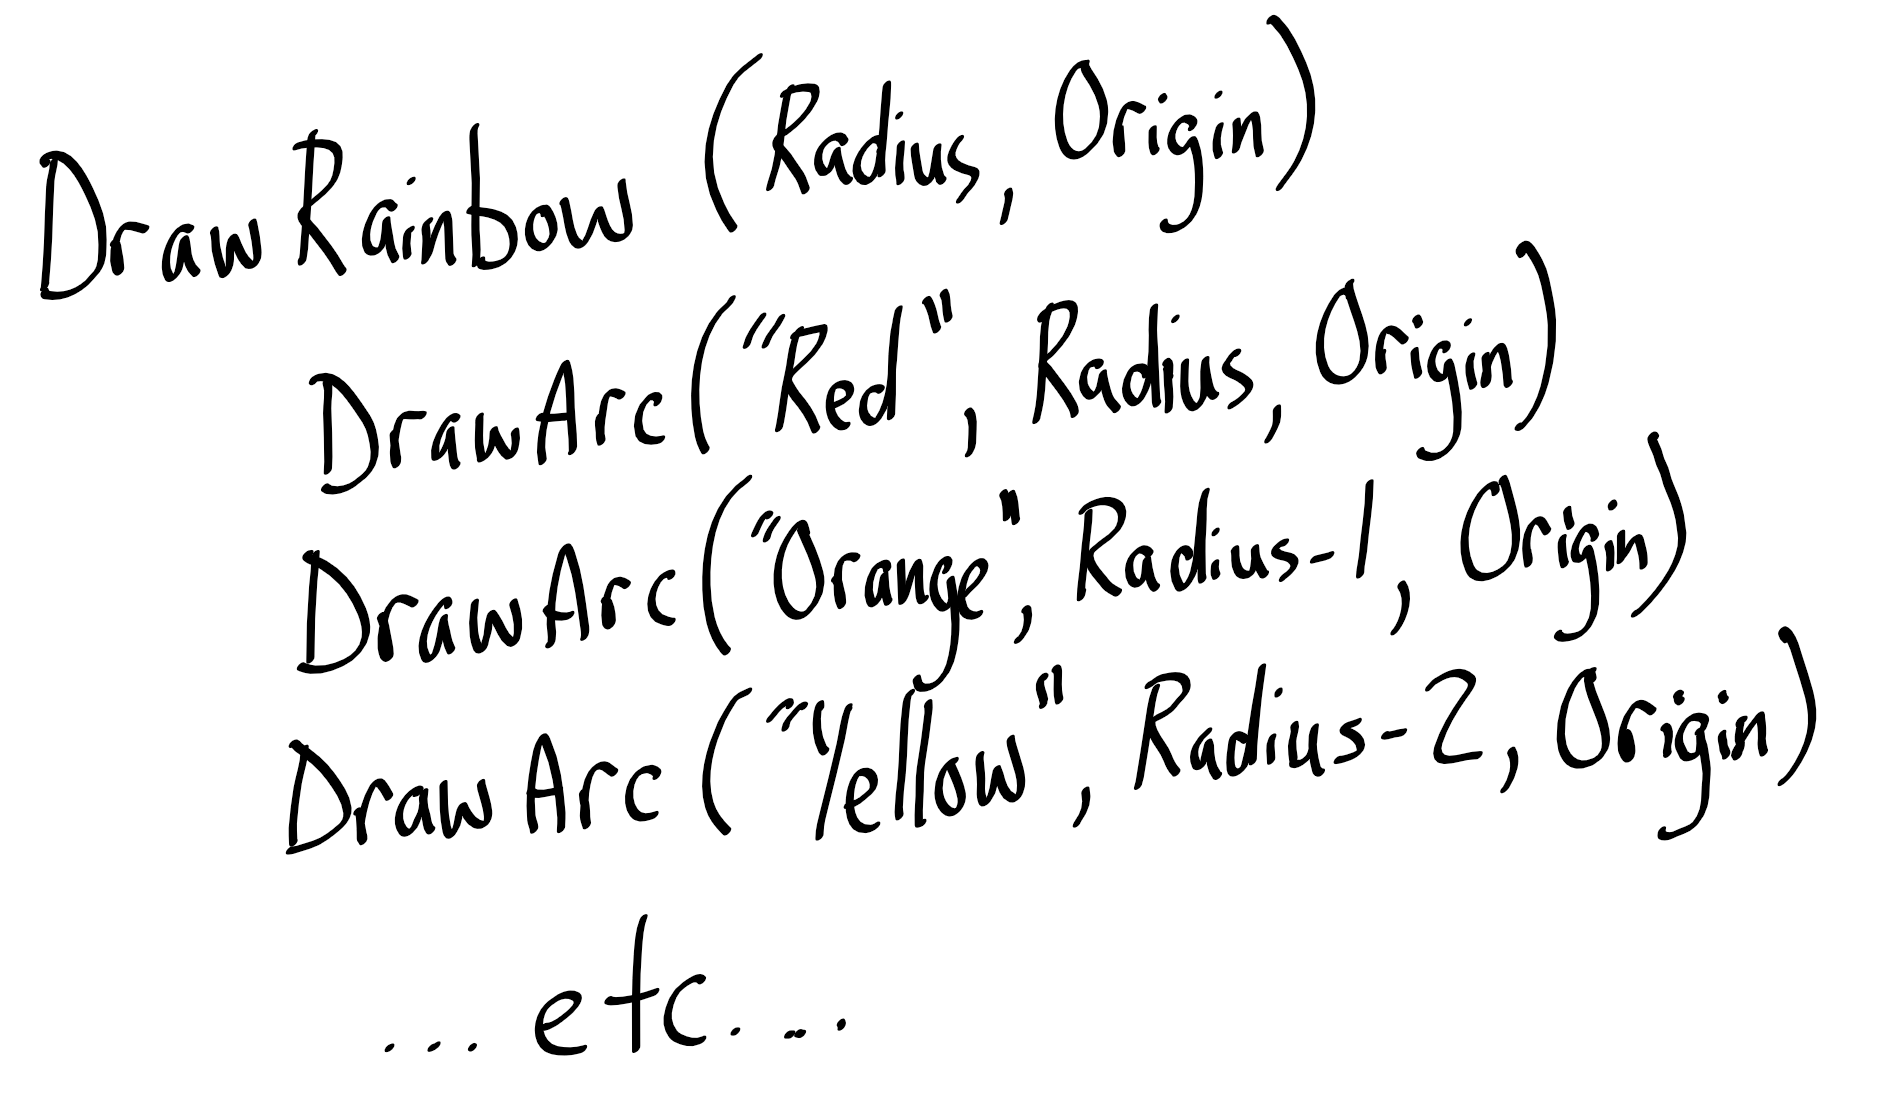 DrawRainbow (Radius, Origin)
DrawArc("Red", Radius, Origin)
DrawArc("Orange", Radius-1, Origin)
DrawArc("Yellow", Radius-2, Origin)
... etc. ...